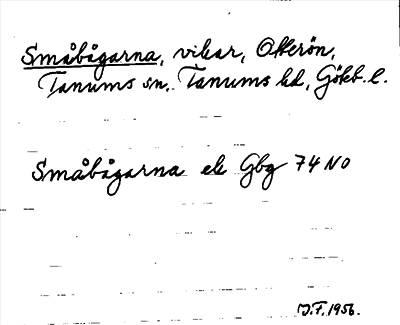 Småbågarna, vikar, Otterön,
Tanums sn., Tanums hd, Göteb. l.
Småbågarna ek Gbg 74 NO
J.F. 1956.